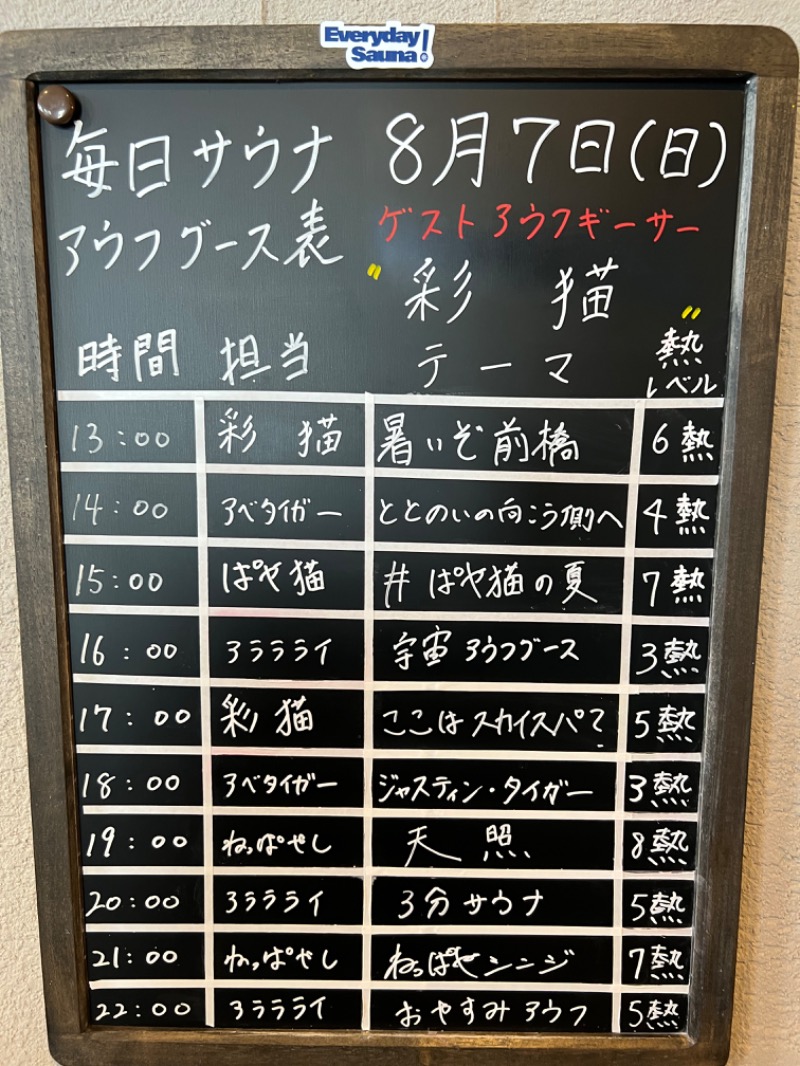 Everyday
Sauna!
毎日サウナ 8月7日(日)
アウフグース表 ゲストアウフギーサー
"彩猫"
時間 担当 テーマ 熱レベル
13:00 彩猫 暑いぞ前橋 6熱
14:00 アベタイガー ととのいの向こう側へ 4熱
15:00 ぱや猫 #ぱや猫の夏 7熱
16:00 アラララライ 宇宙アウフグース 3熱
17:00 彩猫 ここはスカイスパ? 5熱
18:00 アベタイガー ジャスティン・タイガー 3熱
19:00 ねっぱやし 天照 8熱
20:00 アララライ 3分サウナ 5熱
21:00 ねっぱやし ねっぱやンンジ 7熱
22:00 アララライ おやすみアウフ 5熱